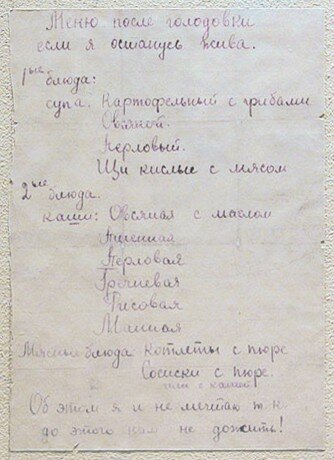 Меню после голодовки
если я останусь жива.
1ые блюда:
супа. Картофельный с грибами
Овсяной.
Перловый.
Щи кислые с мясом
2ые блюда.
каши: Овсяная с маслом
Пшенная
Перловая
Гречневая
Рисовая
Манная
Мясные блюда Котлеты с пюре
Сосиски с пюре.
или с кашей
Об этом я и не мечтаю т.к
до этого нам не дожить!